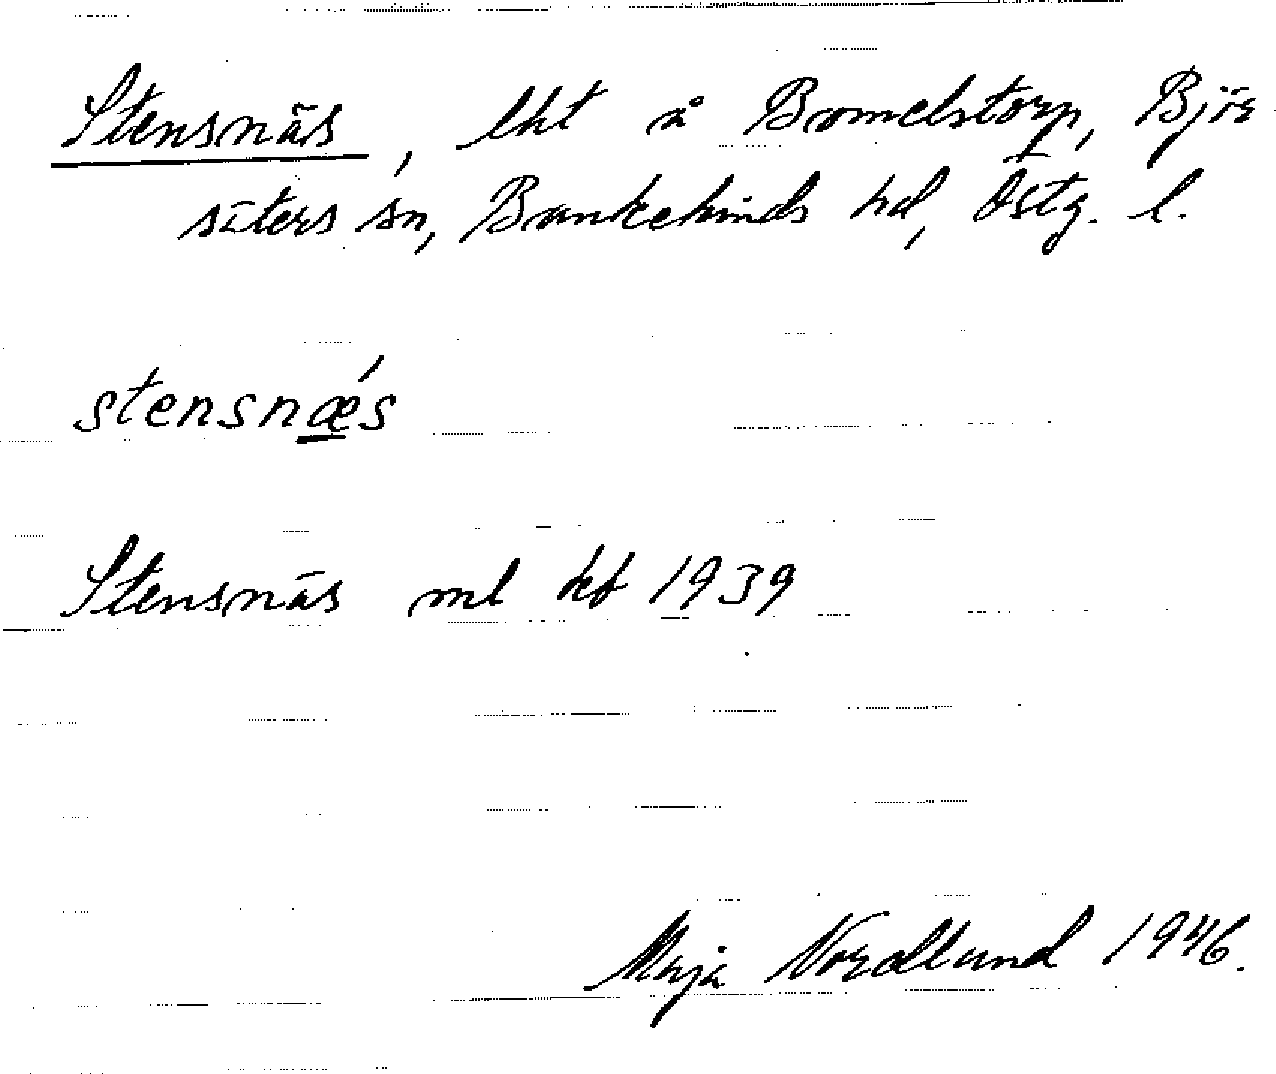 Stensnäs, lht å Bromelstorp, Björ
säters sn, Bankekinds hd, Östg. l.
stensnǽs
Stensnäs ml kb 1939
Maja Nordlund 1946.